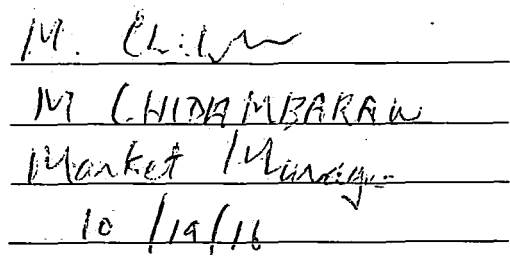 M. Chid
M CHIDAMBARAM
Market Manager
10/19/16